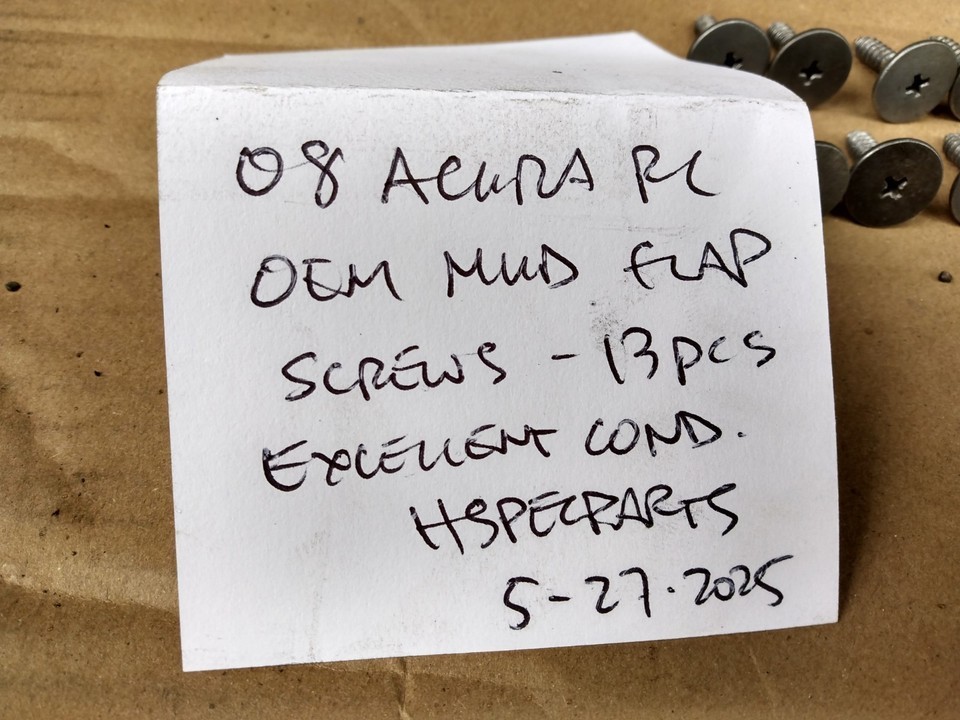 08 ACURA RL
OEM MUD FLAP
SCREWS - 13 pcs
EXCELLENT COND.
HSPECPARTS
5-27.2025